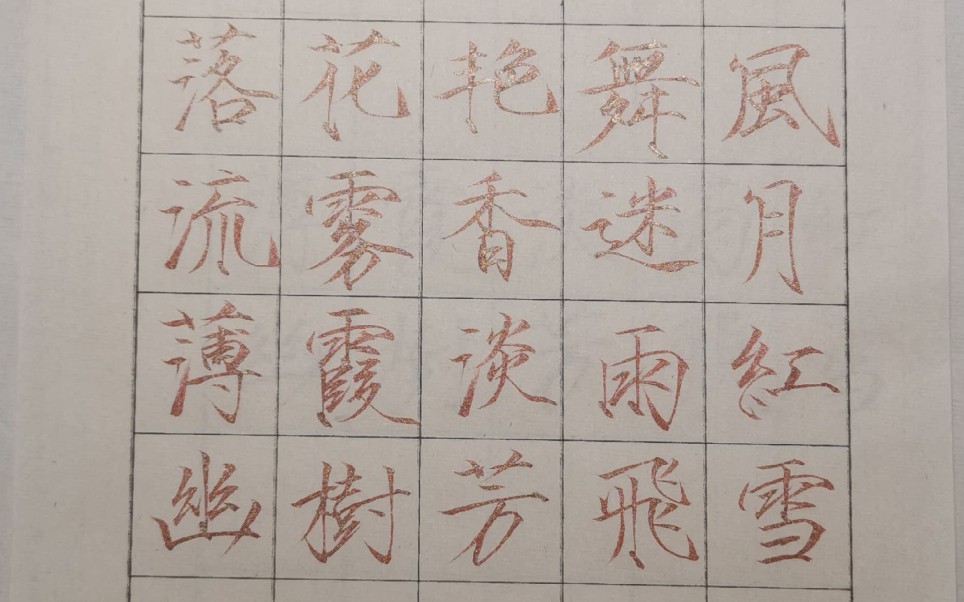 落花艳舞風
流雾香迷月
薄霞淡雨紅
幽樹芳飛雪